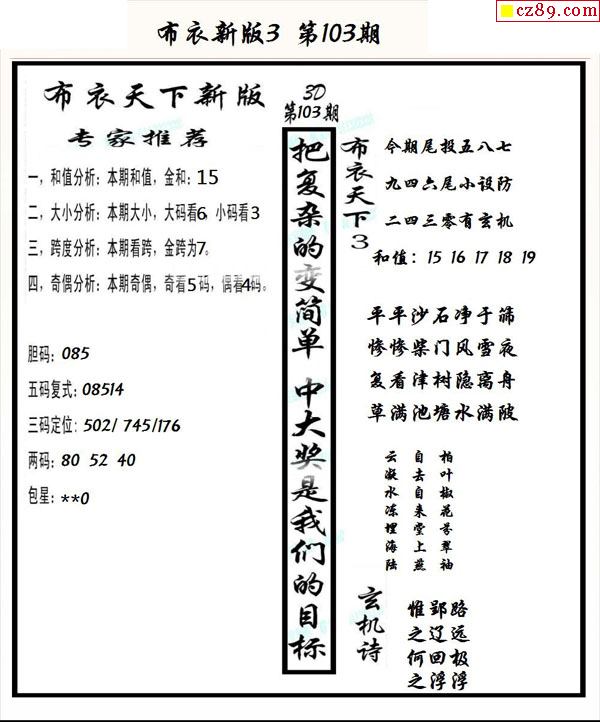 cz89.com
布衣新版3 第103期
布衣天下新版
专家推荐
一，和值分析：本期和值，金和：15
二，大小分析：本期大小，大码看6，小码看3
三，跨度分析：本期看跨，金跨为7。
四，奇偶分析：本期奇偶，奇看5码，偶看4码。
胆码：085
五码复式：08514
三码定位：502/ 745/176
两码：80 52 40
包星：**0
3D
第103期
把复杂的变简单 中大奖是我们的目标
布衣天下3
今期尾投五八七
九四六尾小设防
二四三零有玄机
和值：15 16 17 18 19
平平沙石净于筛
惨惨柴门风雪夜
复看津树隐离舟
草满池塘水满陂
云凝水冻埋海陆
自去自来堂上燕
柏叶椒花芬翠袖
玄机诗
惟郢路
之辽远
何回极
之浮浮